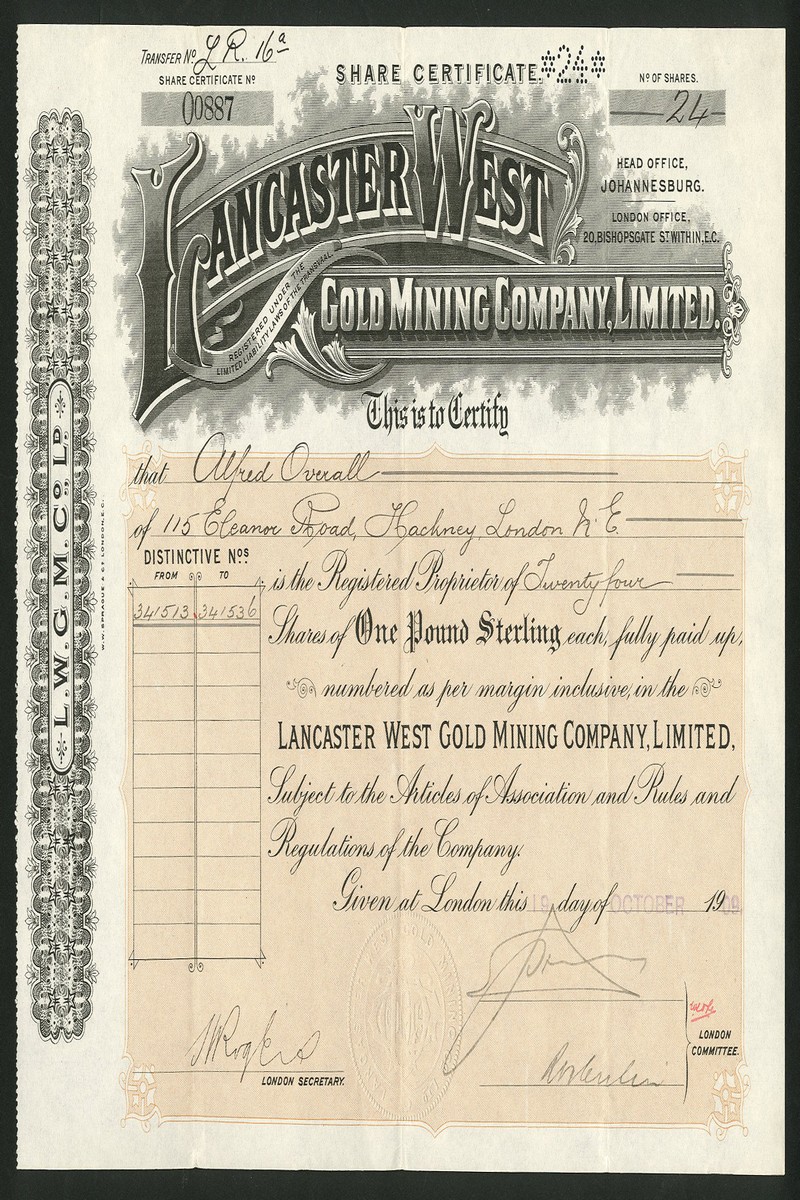 TRANSFER Nº L R. 16ª
SHARE CERTIFICATE Nº
00887
SHARE CERTIFICATE. *24*
Nº OF SHARES.
24
LANCASTER WEST
GOLD MINING COMPANY, LIMITED.
REGISTERED UNDER THE
LIMITED LIABILITY LAWS OF THE TRANSVAAL.
HEAD OFFICE,
JOHANNESBURG.
LONDON OFFICE,
20, BISHOPSGATE ST WITHIN, E.C.
This is to Certify
that Alfred Overall
of 115 Eleanor Road, Hackney, London N.E.
DISTINCTIVE NOS
FROM TO
341513 341536
is the Registered Proprietor of Twenty four
Shares of One Pound Sterling each, fully paid up,
numbered as per margin inclusive, in the
LANCASTER WEST GOLD MINING COMPANY, LIMITED,
Subject to the Articles of Association and Rules and
Regulations of the Company.
Given at London this 19 day of OCTOBER 1909
Rogers
LONDON SECRETARY.
LONDON
COMMITTEE.
L.W.G.M.CO., LD.
W.W. SPRAGUE & CO LONDON, E.C.